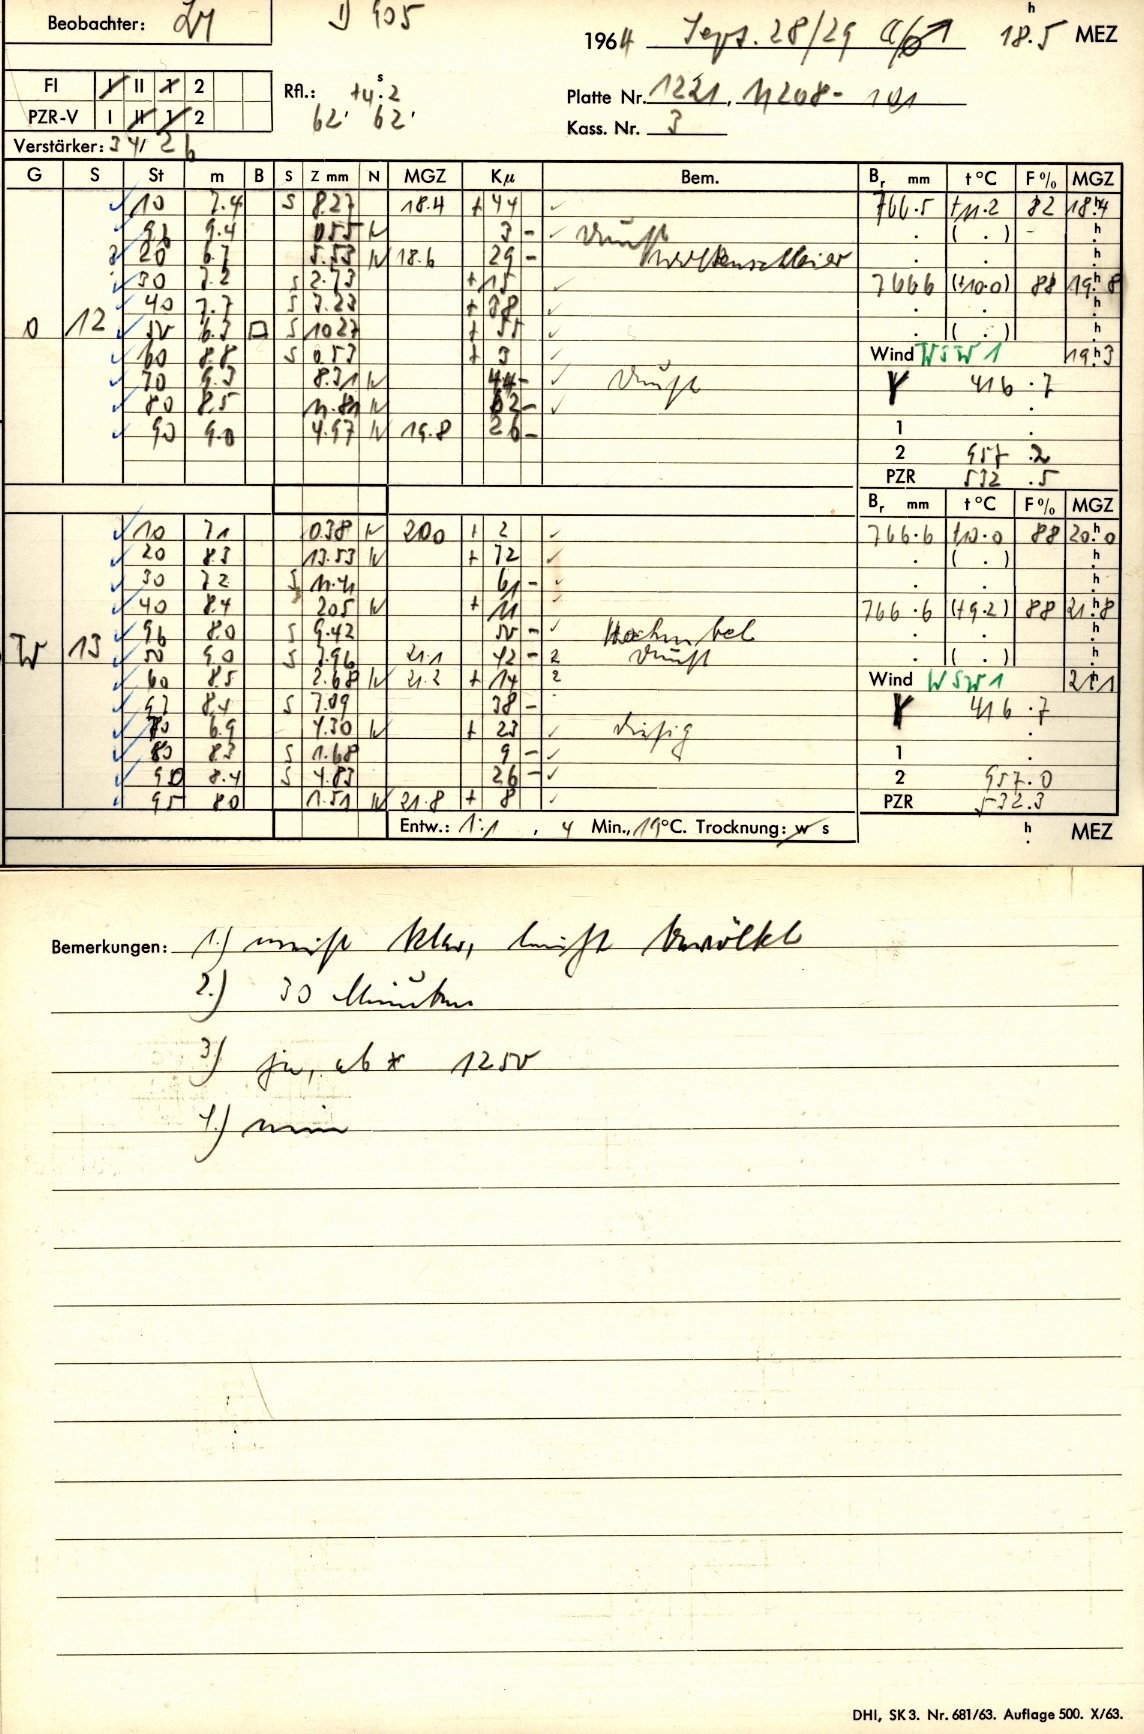 Beobachter: D 905
1964 Sept. 28/29 18.5 h MEZ
FI I II 1 2
PZR-V I II 1 2
Rfl.: +4.2 s
62' 62'
Platte Nr. 1221, 11208-101
Kass. Nr. 3
Verstärker: 34/26
G S St m B S Z mm N MGZ Kµ Bem. Br mm t °C F % MGZ
10 7.4 S 8.27 18.4 + 44 766.5 +11.2 82 18.4 h
96 9.4 0.55 N 3 - Dunst . ( . ) - h
20 6.7 5.53 N 18.6 29 - Wolkenschleier . . h
30 7.2 S 2.73 + 15 766.6 (+10.0) 88 19.8 h
40 7.7 S 7.23 + 38 . . h
O 12 50 6.3 □ S 10.27 + 55 . ( . ) h
60 8.8 S 0.53 + 3 Wind WSW 1 19.3 h
70 9.3 8.31 N 44 - Dunst Y 416.7
80 8.5 11.81 N 62 - .
90 9.0 4.97 N 19.8 26 - 1 .
2 957.2
PZR 532.5
Br mm t °C F % MGZ
10 7.1 0.38 N 20.0 + 2 766.6 +10.0 88 20.0 h
20 8.3 13.53 N + 72 . ( . ) h
30 7.2 S 11.41 61 - . . h
40 8.4 2.05 N + 11 766.6 (+9.2) 88 21.8 h
96 8.0 S 9.42 50 - Hochnebel . . h
W 13 50 9.0 S 7.96 21.1 42 - 2 Dunst . ( . ) h
60 8.5 2.68 N 21.2 + 14 2 Wind WSW 1 21.1 h
97 8.4 S 7.09 38 - Y 416.7
70 6.9 4.30 N + 23 diesig .
80 8.3 S 1.68 9 - 1 .
90 8.4 S 4.83 26 - 2 957.0
95 8.0 1.51 N 21.8 + 8 PZR 532.3
Entw.: 1:1, 4 Min., 19°C. Trocknung: w s h MEZ
Bemerkungen: 1.) meist klar, leicht bewölkt
2.) 30 Minuten
3.) ja, ab * 1250
4.) nein
DHI, SK 3. Nr. 681/63. Auflage 500. X/63.